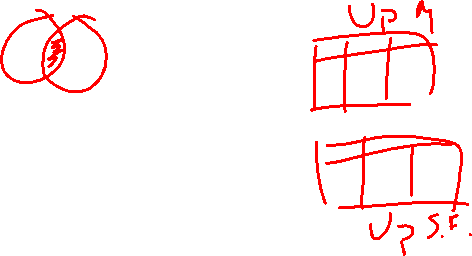 Up
Up S.F.